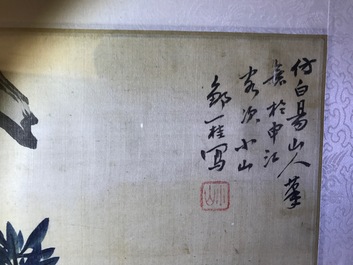 仿白昜山人筆
意於申江
客次小山
鄒一桂寫
小山